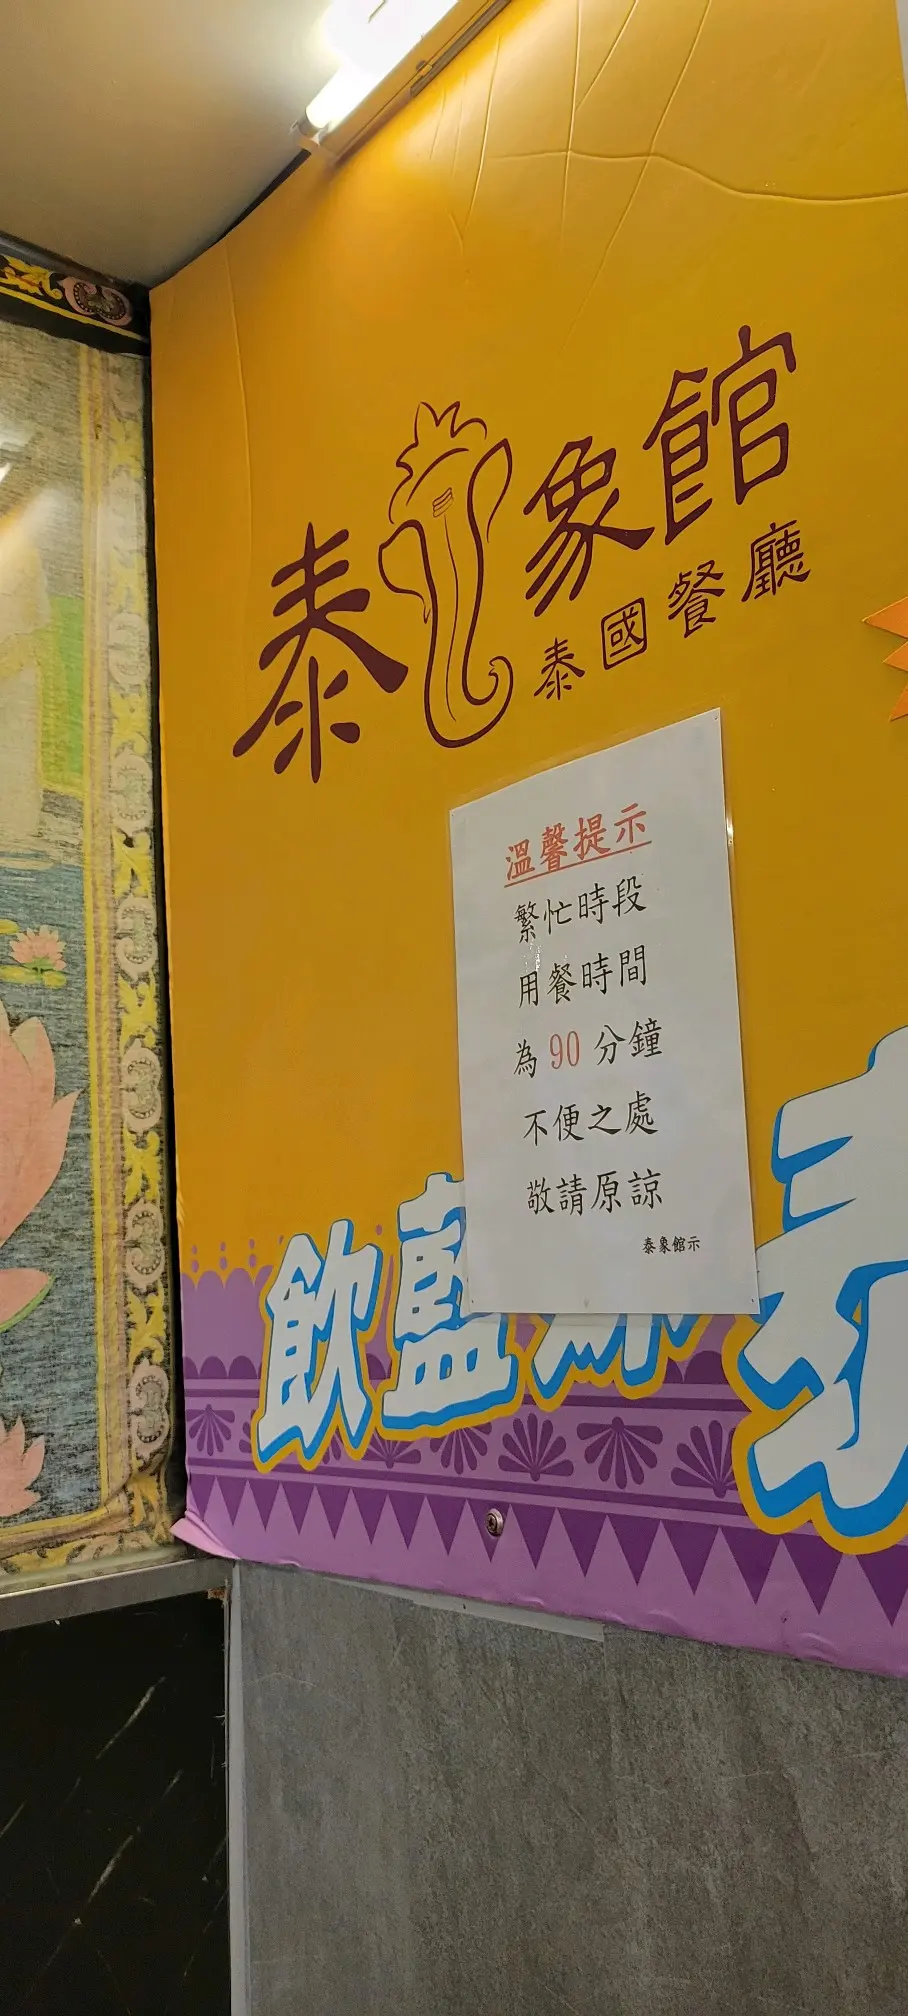 泰象館
泰國餐廳
溫馨提示
繁忙時段
用餐時間
為 90 分鐘
不便之處
敬請原諒
泰象館示
飲藍